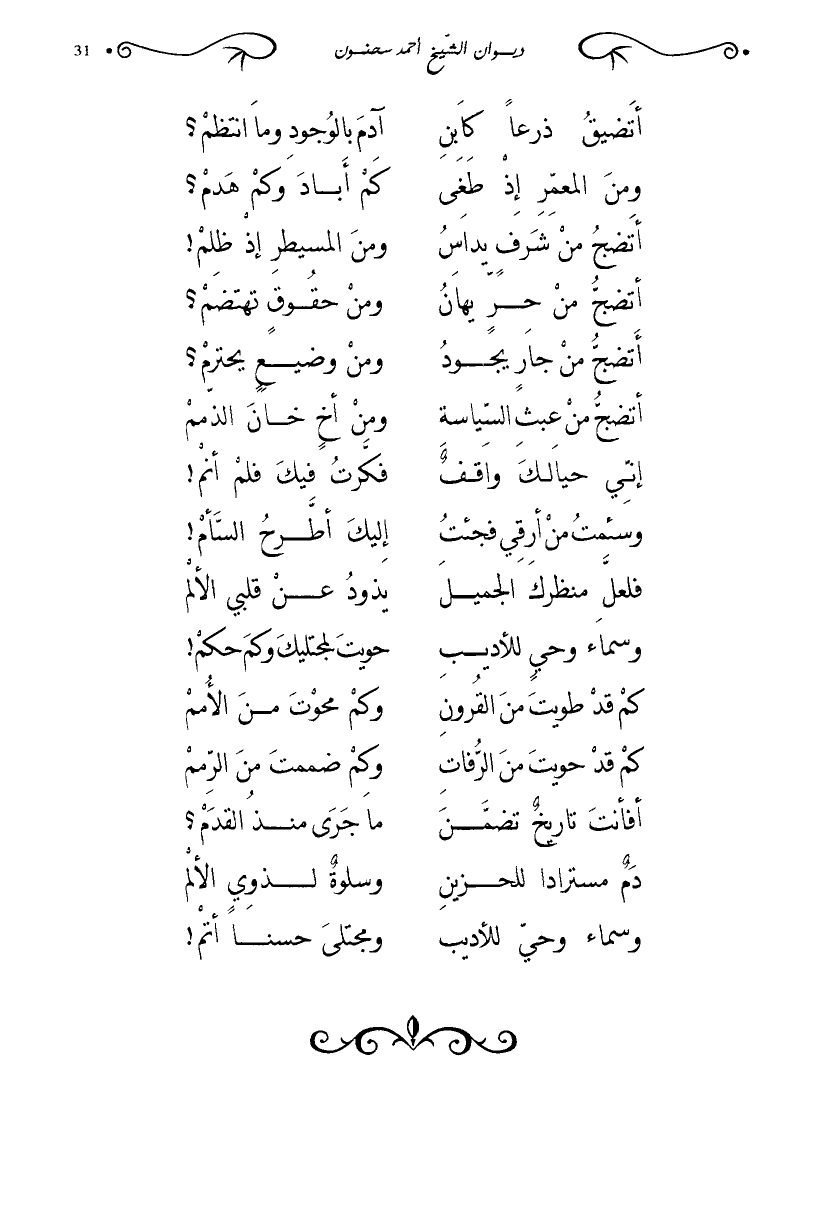 31 ديوان الشّيخ أحمد سحنون
أتَضيقُ ذرعاً كابنِ آدمَ بالوُجودِ وما انتظمْ؟
ومنَ المعمّرِ إذْ طَغَى كمْ أَبادَ وكمْ هَدمْ؟
أتضجُّ منْ شَرفٍ يداسُ ومنَ المسيطرِ إذْ ظلمْ!
أتضجُّ منْ حرٍّ يهانُ ومنْ حقُوقٍ تهتضمْ؟
أَتضجُّ منْ جارٍ يجودُ ومنْ وضيعٍ يحترمْ؟
أتضجُّ منْ عبثِ السّياسةِ ومنْ أخٍ خانَ الذّممْ
إنّي حيالكَ واقفٌ فكّرتُ فيكَ فلمْ أنمْ!
وسئمتُ منْ أرقِي فجئتُ إليكَ أطّرحُ السَّأمْ!
فلعلّ منظرك الجميل يذودُ عنْ قلبي الألمْ
وسماء وحيٍ للأديب حويتَ لمجتليكَ وكمَ حكمْ!
كمْ قدْ طويتَ منَ القُرونِ وكمْ محوْتَ منَ الأُممْ
كمْ قدْ حويتَ منَ الرُّفاتِ وكمْ ضممتَ منَ الرّممْ
أفأنتَ تاريخٌ تضمَّنَ ما جَرَى منذُ القدَمْ؟
دَمٌ مسترادا للحزينِ وسلوةٌ لذوِي الألمْ
وسماء وحيّ للأديب ومجتلىَ حسناً أتمْ!